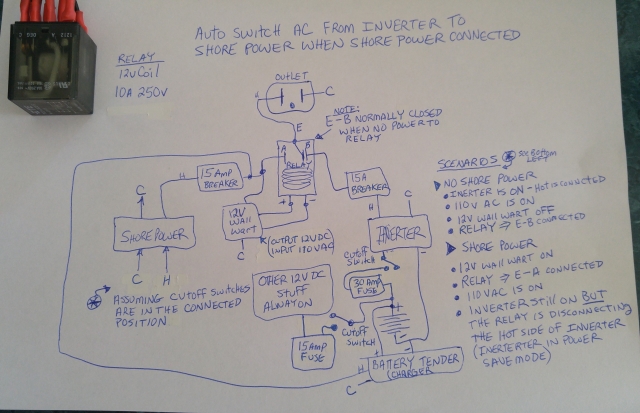 AUTO SWITCH AC FROM INVERTER TO
SHORE POWER WHEN SHORE POWER CONNECTED
RELAY
12V COIL
10A 250V
OUTLET
H
C
E
NOTE:
E-B NORMALLY CLOSED
WHEN NO POWER TO
RELAY
A
B
RELAY
+
-
H
15 AMP
BREAKER
15A
BREAKER
C
SHOREPOWER
C
H
12V
WALL
WART
C
(OUTPUT 12VDC
INPUT 110VAC)
H
C
INVERTER
+
-
CUTOFF
SWITCH
30 AMP
FUSE
OTHER 12V DC
STUFF
ALWAYON
15AMP
FUSE
CUTOFF
SWITCH
+
-
H
C
BATTERY TENDER
(CHARGER
ASSUMING CUTOFF SWITCHES
ARE IN THE CONNECTED
POSITION
SCENARIOS
SEE BOTTOM
LEFT
NO SHORE POWER
• INERTER IS ON - HOT IS CONNECTED
• 110V AC IS ON
• 12V WALL WART OFF
• RELAY ⇒ E-B CONNECTED
SHORE POWER
• 12V WALL WART ON
• RELAY ⇒ E-A CONNECTED
• 110VAC IS ON
• INVERTER STILL ON BUT
THE RELAY IS DISCONNECTING
THE HOT SIDE OF INVERTER
(INERTERTER IN POWER
SAVE MODE)